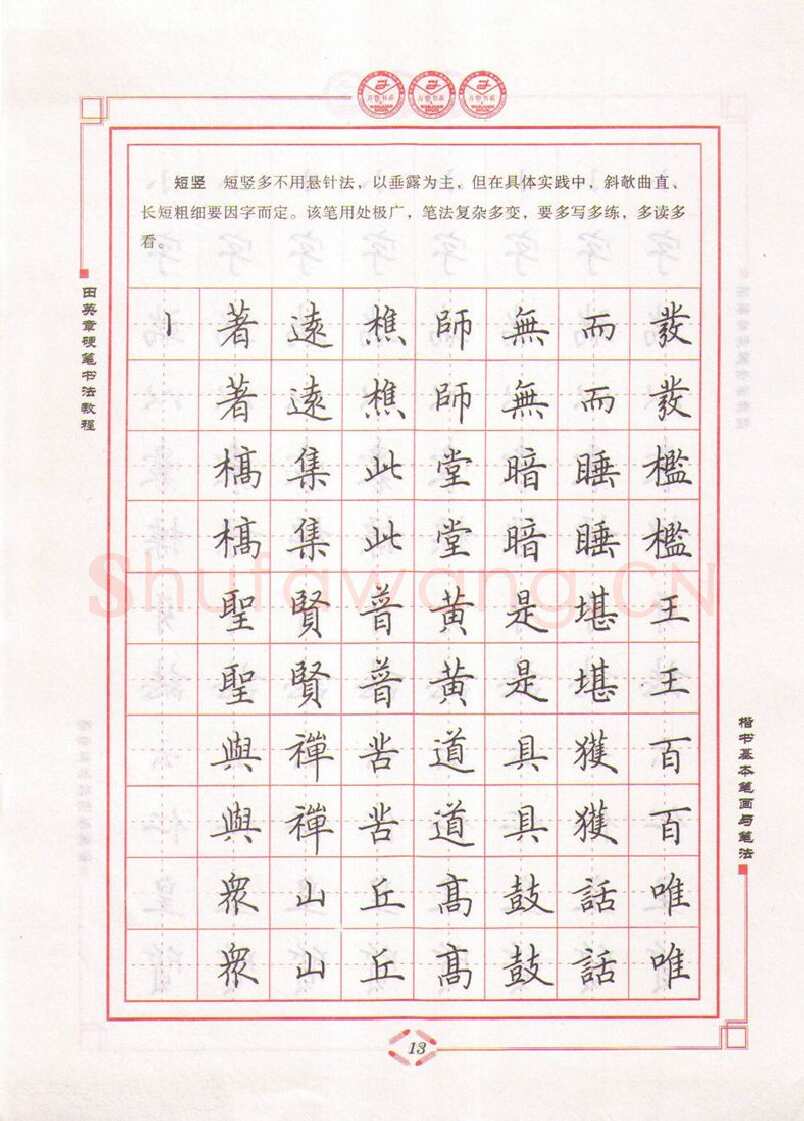 短竖 短竖多不用悬针法，以垂露为主，但在具体实践中，斜欹曲直、
长短粗细要因字而定。该笔用处极广，笔法复杂多变，要多写多练，多读多
看。
田英章硬笔书法教程
丨著遠樵師無而發
著遠樵師無而發
槁集此堂暗睡檻
槁集此堂暗睡檻
Shufawang.CN
聖賢普黄是堪王
聖賢普黄是堪王
與禪苦道具獲百
與禪苦道具獲百
衆山丘髙鼓話唯
衆山丘髙鼓話唯
楷书基本笔画与笔法
13